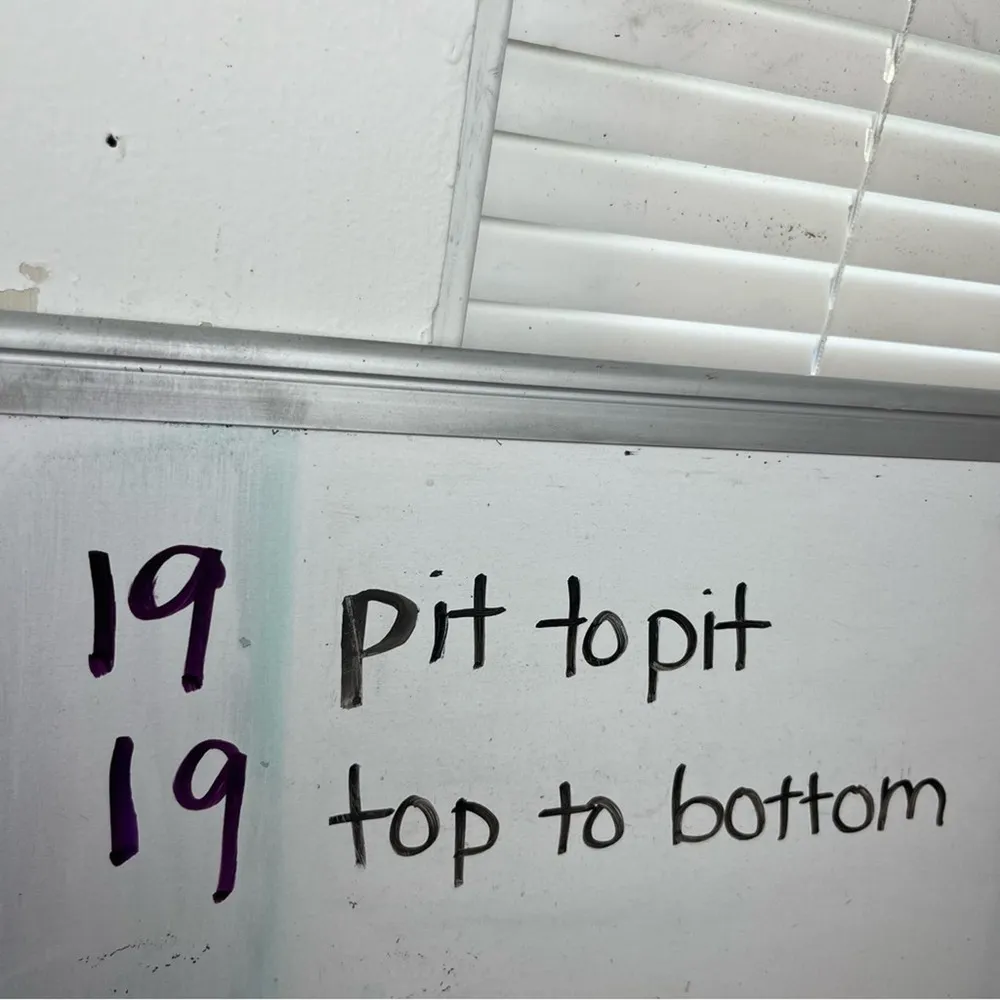 19 pit to pit
19 top to bottom